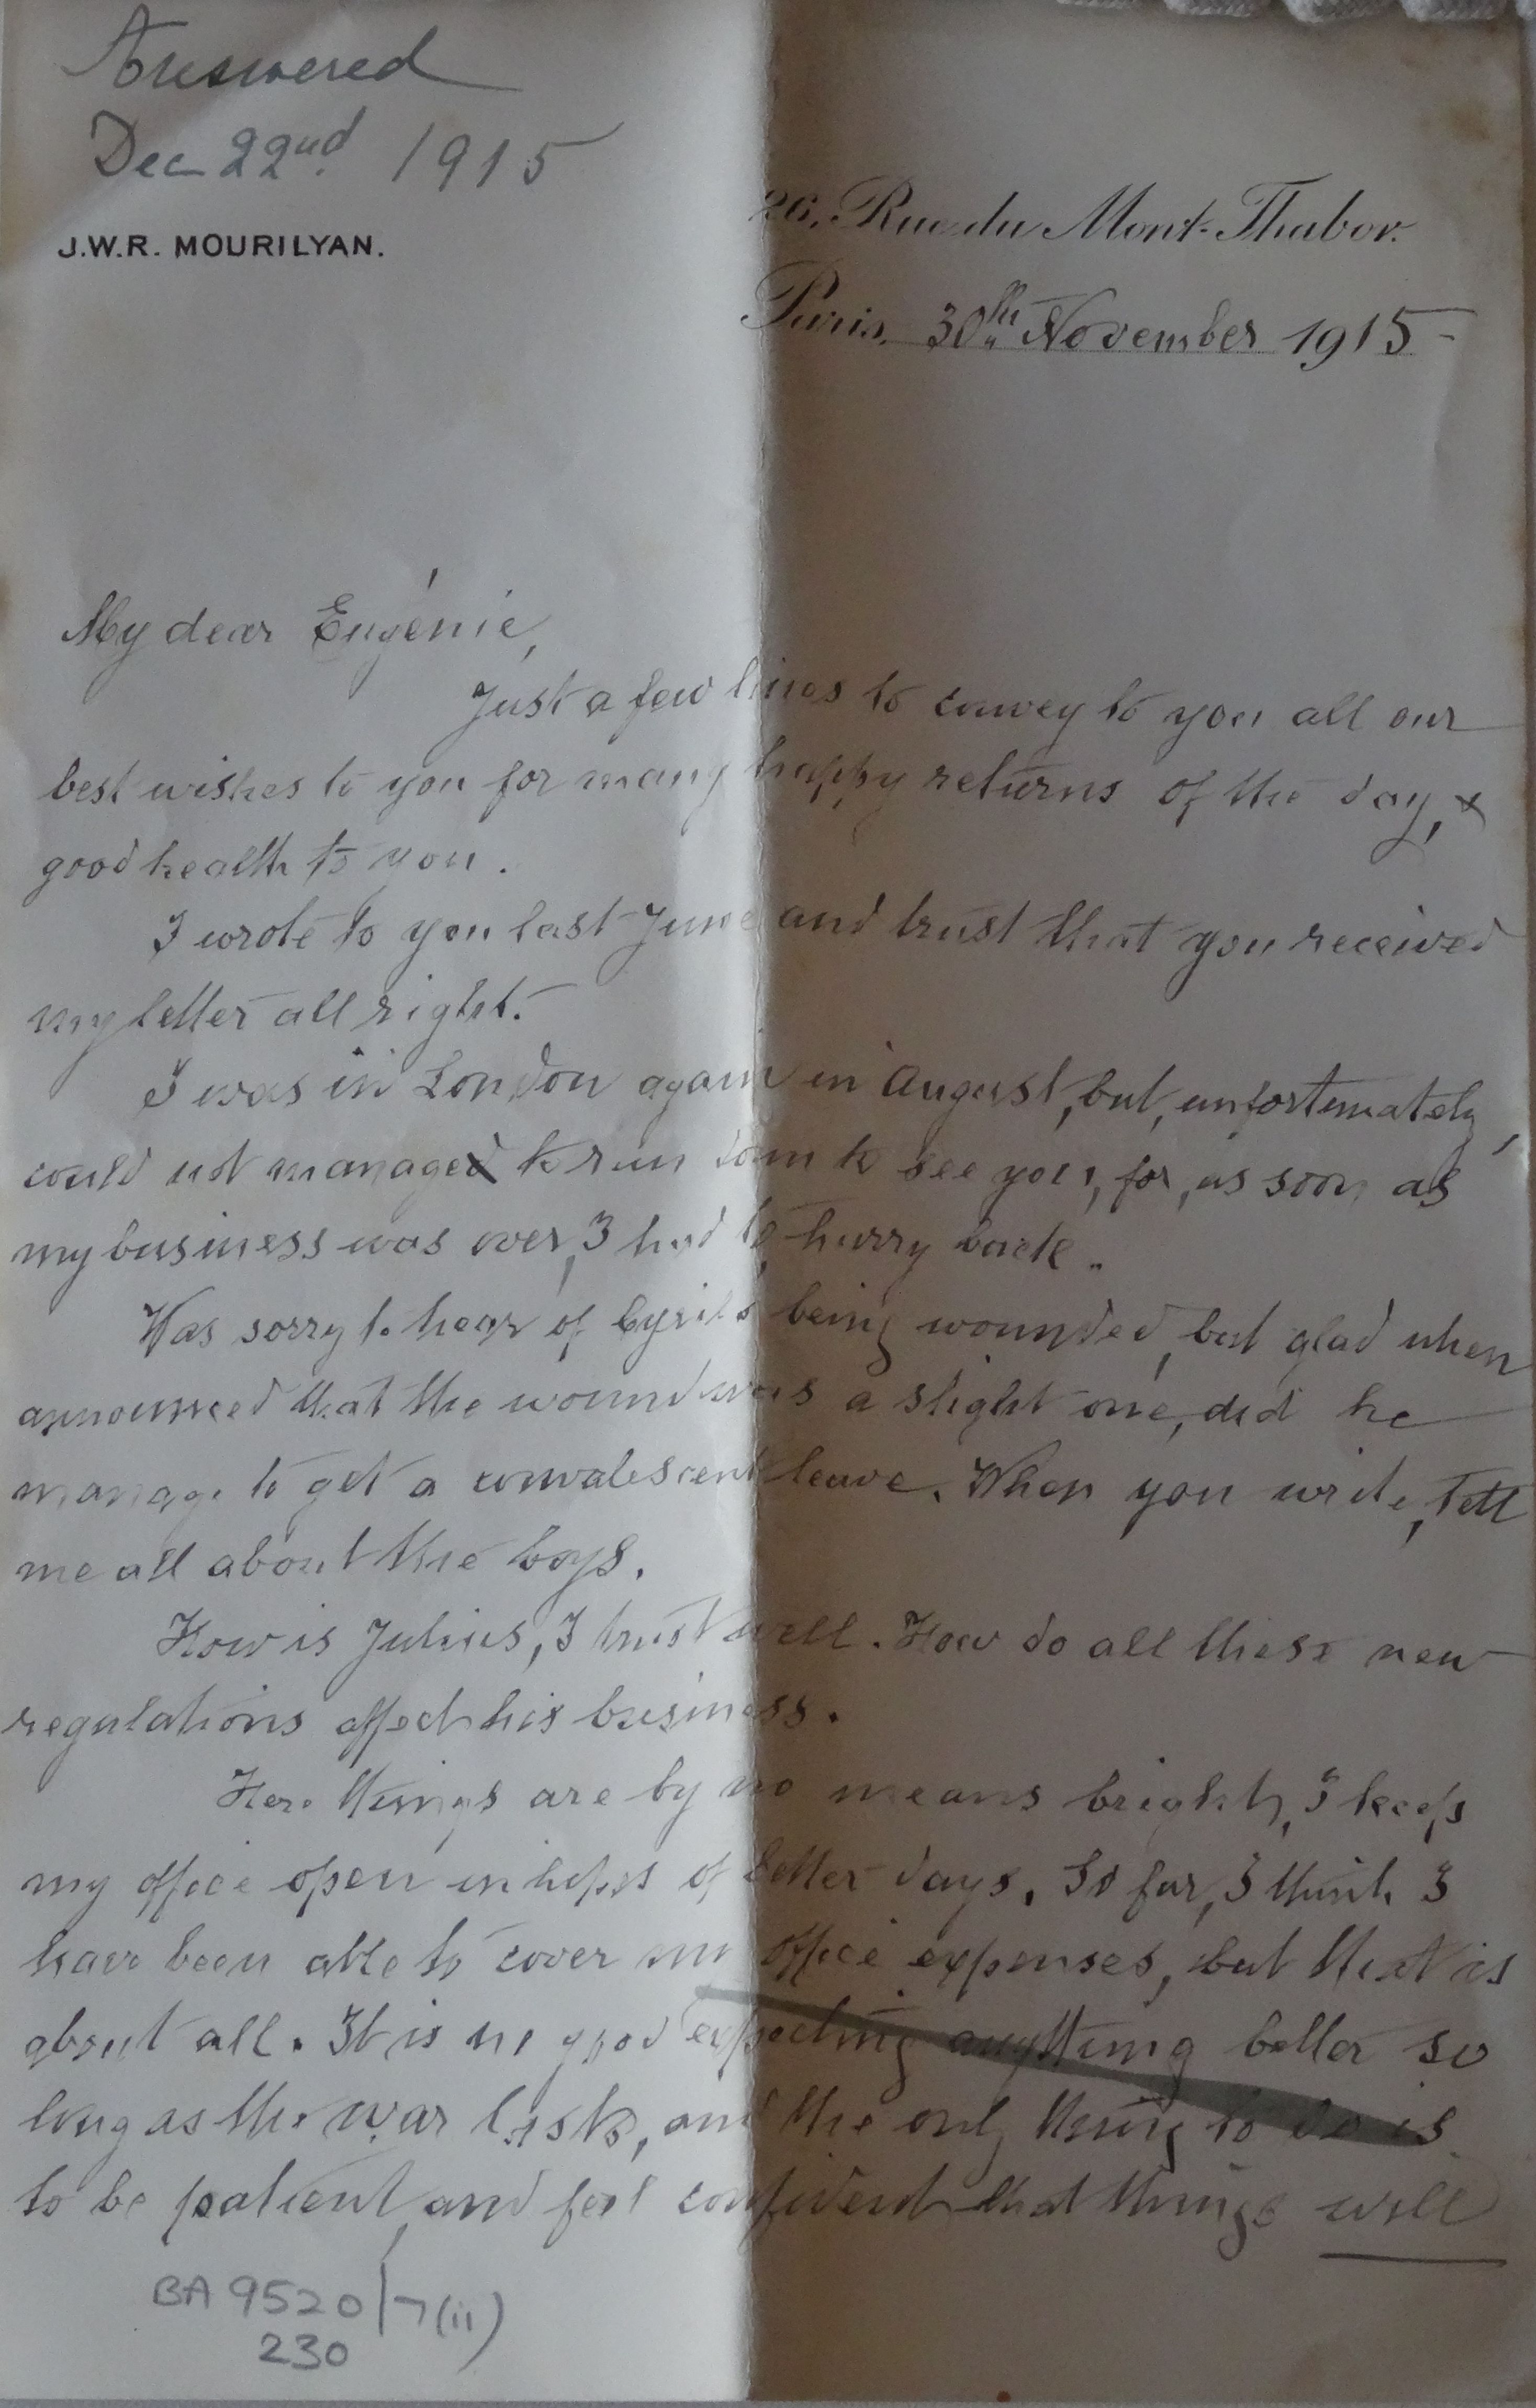 Answered
Dec 22nd 1915
J.W.R. MOURILYAN.
26, Rue du Mont-Thabor.
Paris, 30th November 1915-
My dear Eugénie,
Just a few lines to convey to you all our
best wishes to you for many happy returns of the day, &
good health to you.
I wrote to you last June and trust that you received
my letter all right.
I was in London again in August, but, unfortunately,
could not managed to run down to see you, for, as soon as
my business was over, I had to hurry back.
Was sorry to hear of Cyril's being wounded, but glad when
announced that the wound was a slight one, did he
manage to get a convalescent leave. When you write, tell
me all about the boys.
How is Julius, I trust well. How do all these new
regulations affect his business.
Here things are by no means bright, I keep
my office open in hopes of better days. So far, I think I
have been able to cover my office expenses, but that is
about all. It is no good expecting anything better so
long as the war lasts, and the only thing to do is
to be patient, and feel confident that things will
BA 9520/7(ii)
230